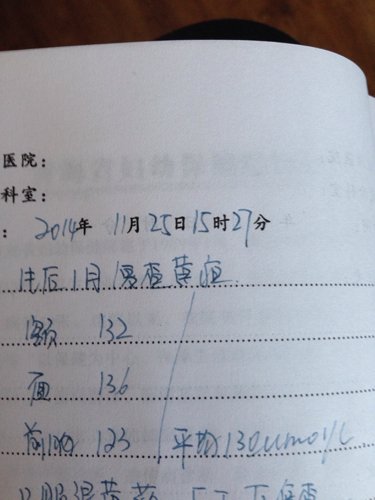 医院:
科室:
: 2014年 11月25日15时27分
生后1月 罹患黄疸
额 132
面 136
前胸 123 平均130umol/L
服退黄药